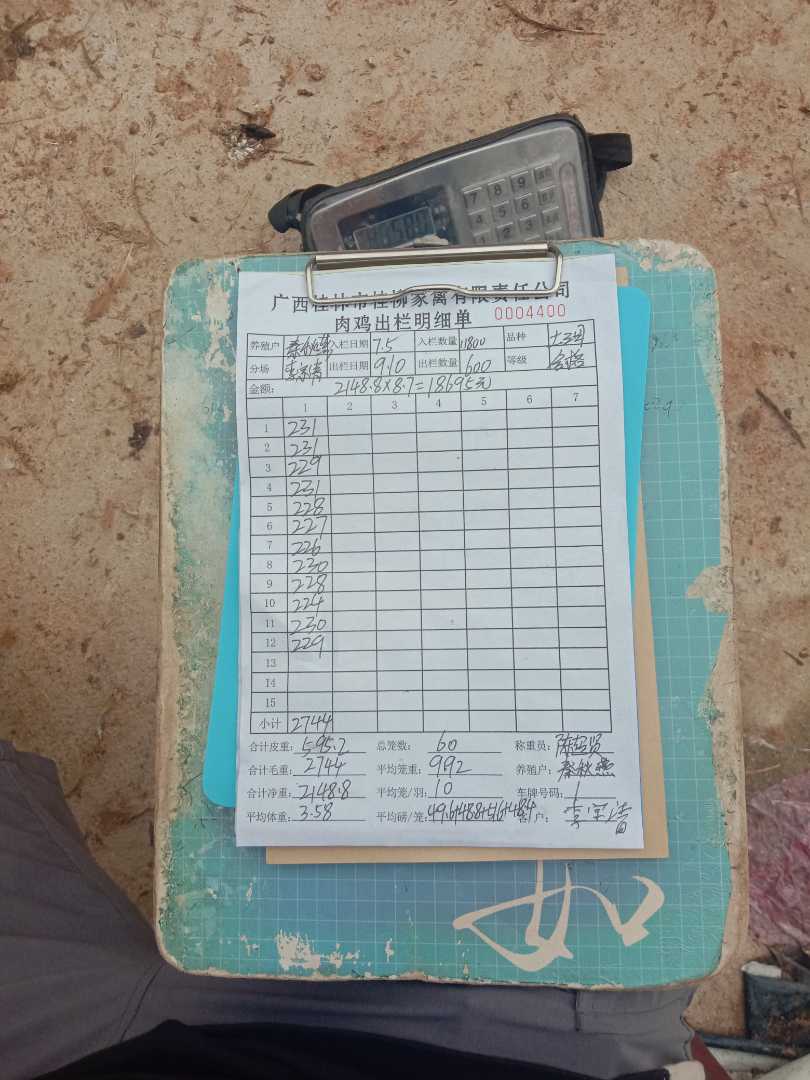 7 8 9
4 5 6
1 2 3
广西桂林市桂柳家禽有限责任公司
肉鸡出栏明细单 0004400
养殖户 入栏日期 7.5 入栏数量 1800 品种
分场 出栏日期 9.10 出栏数量 600 等级 合格
金额: 2148.8×8.7=18695元
1 2 3 4 5 6 7
1 231
2 231
3 229
4 231
5 228
6 227
7 226
8 230
9 228
10 224
11 230
12 229
13
14
15
小计 2744
合计皮重: 595.2 总笼数: 60 称重员:
合计毛重: 2744 平均笼重: 9.92 养殖户: 秦秋燕
合计净重: 2148.8 平均笼/羽: 10 车牌号码: 1
平均体重: 3.58 平均磅/笼: 49.6+48.8+51.6+48.4 客户:
如